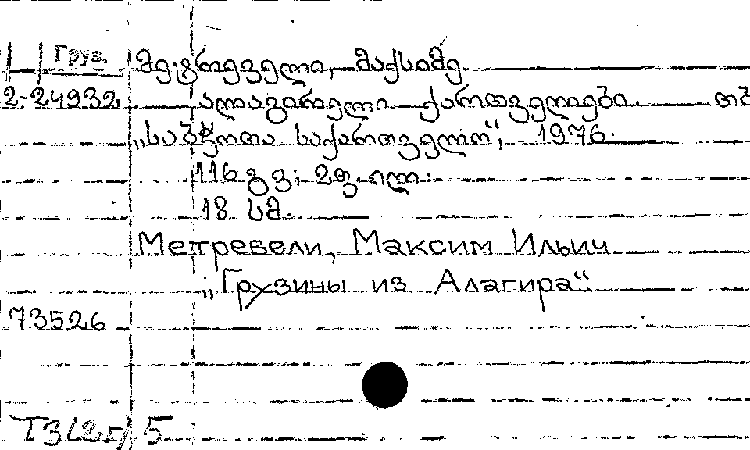 Груз. მეტრეველი, მაქსიმე.
2-24932 ალაგირელი ქართველები. თბ
„საბჭოთა საქართველო“, 1976.
116 გვ; 2ფ. ილ.
18 სმ.
Метревели, Максим Ильич
„Грузины из Алагира“
73526